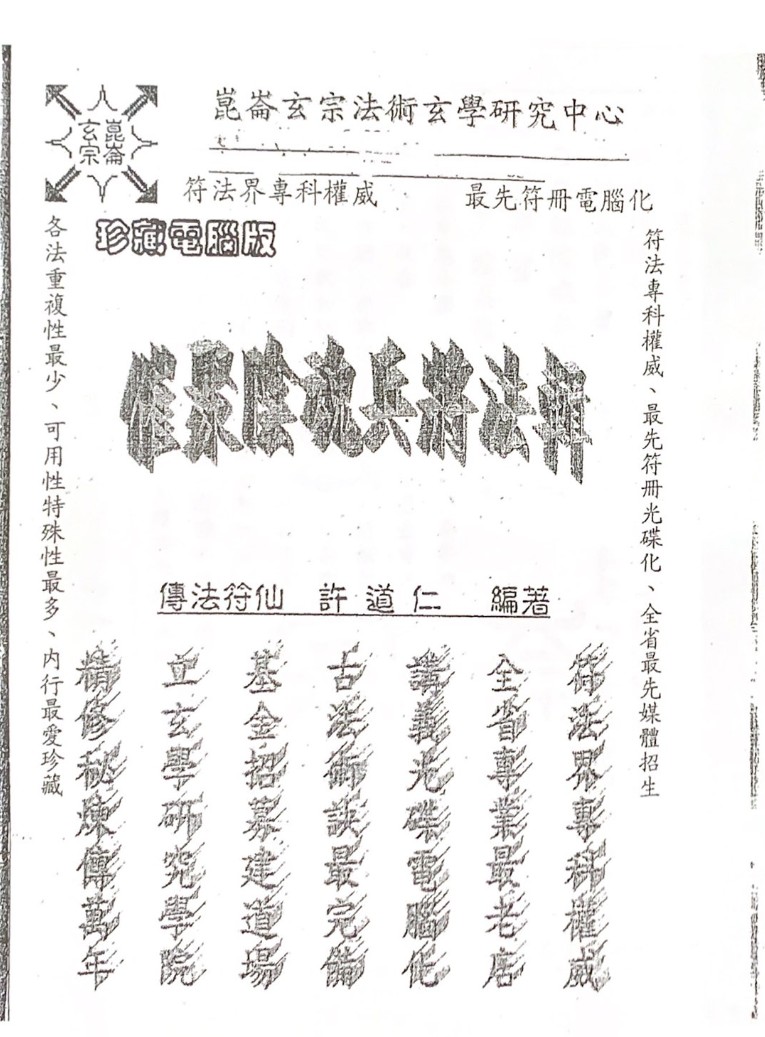 崑崙
玄宗
崑崙玄宗法術玄學研究中心
符法界專科權威 最先符冊電腦化
珍藏電腦版
符法專科權威、最先符冊光碟化、全省最先媒體招生
催聚陰魂兵將法輯
傳法符仙 許道仁 編著
符法界專科權威
全省專業最老店
講義光碟電腦化
古法術訣最完備
基金招募建道場
立玄學研究學院
精修秘煉傳萬年
各法重複性最少、可用性特殊性最多、內行最愛珍藏